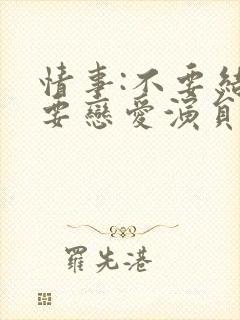 情事:不要結
要戀愛演員
羅先港